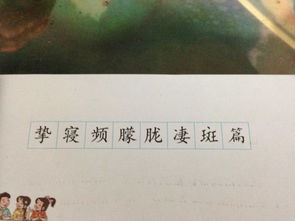 挚寝频朦胧凄斑篇